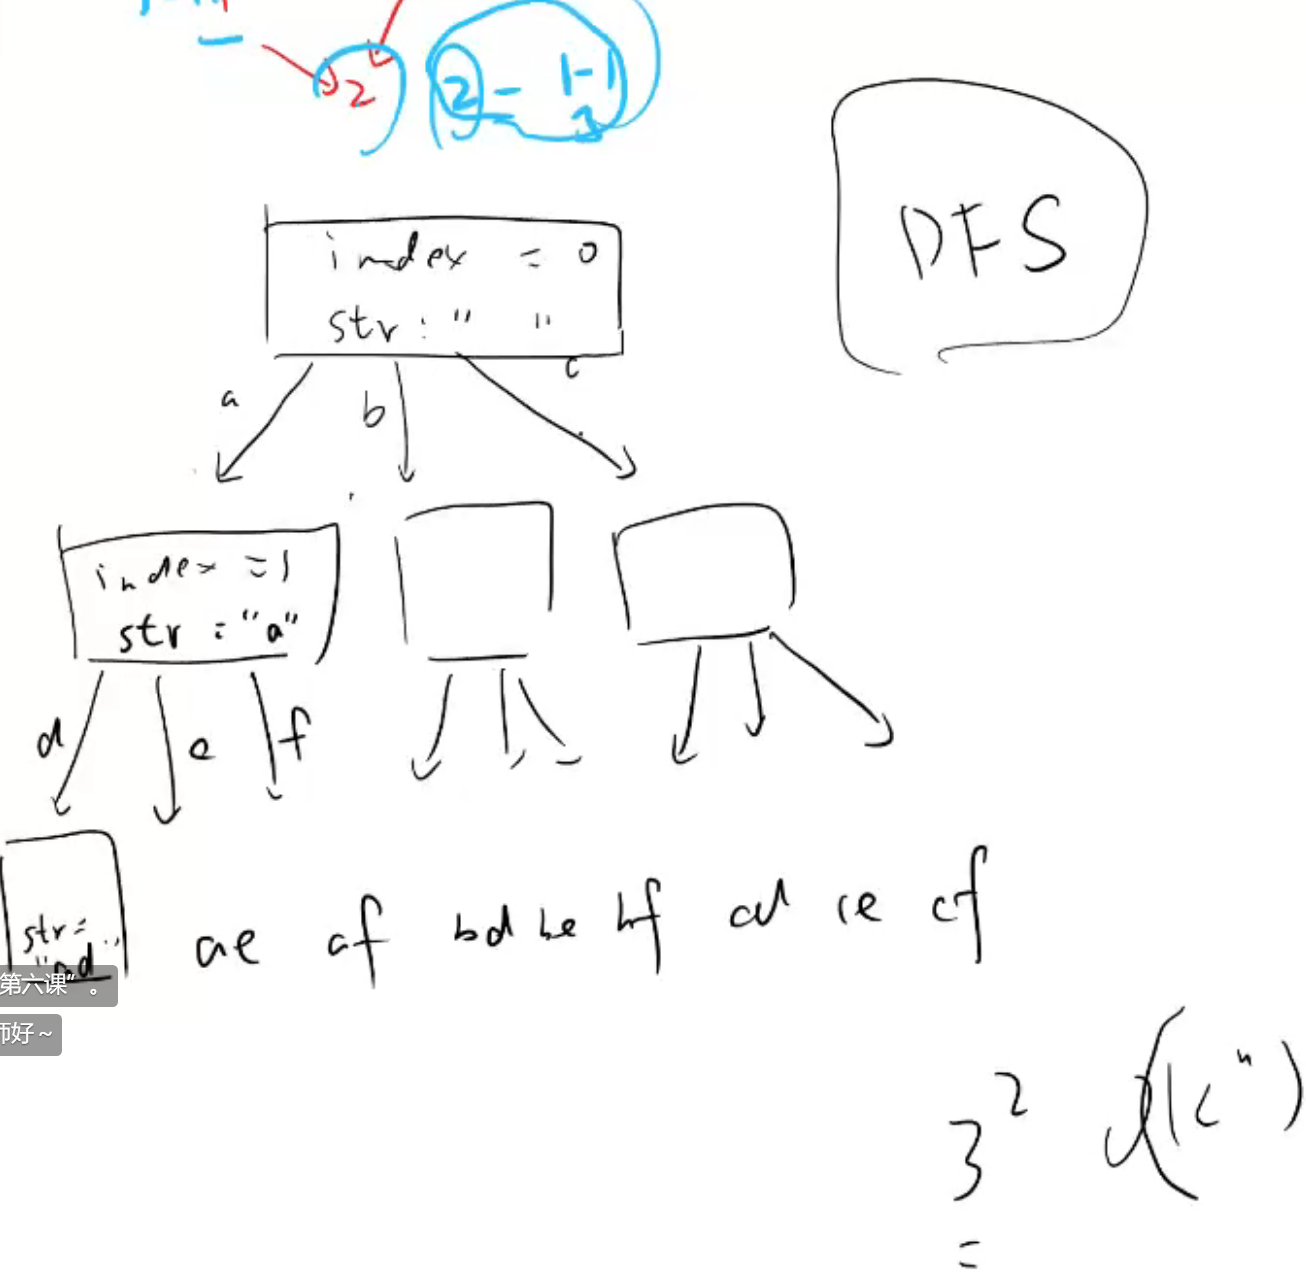 2 2 = 1-1
3
DFS
index = 0
str : " "
a b c
index = 1
str : "a"
d e f
str =
"ad"
ae af bd be bf cd ce cf
第六课”。
师好~
3² O(kⁿ)
=